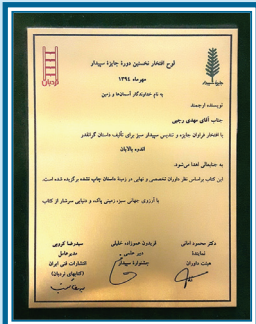 لوح افتخار نخستین دورهٔ جایزهٔ سپیدار
مهرماه ۱۳۹۴
به نام خداوندگار آسمان‌ها و زمین
نردبان
سپیدار
نویسنده ارجمند
جناب آقای مهدی رجبی
با افتخار فراوان جایزه و تندیس سپیدار سبز برای تألیف داستان گرانقدر
اندوه بالابان
به جنابعالی اهدا می‌شود.
این کتاب براساس نظر داوران تخصصی و نهایی در زمینهٔ داستان چاپ نشده برگزیده شده است.
با آرزوی جهانی سبز، زمینی پاک، و دنیایی سرشار از کتاب
دکتر محمود امانی
نماینده
هیئت داوران
فریدون عموزاده خلیلی
دبیر علمی
جشنواره سپیدار
سیدرضا کروبی
مدیرعامل
انتشارات فنی ایران
(کتابهای نردبان)